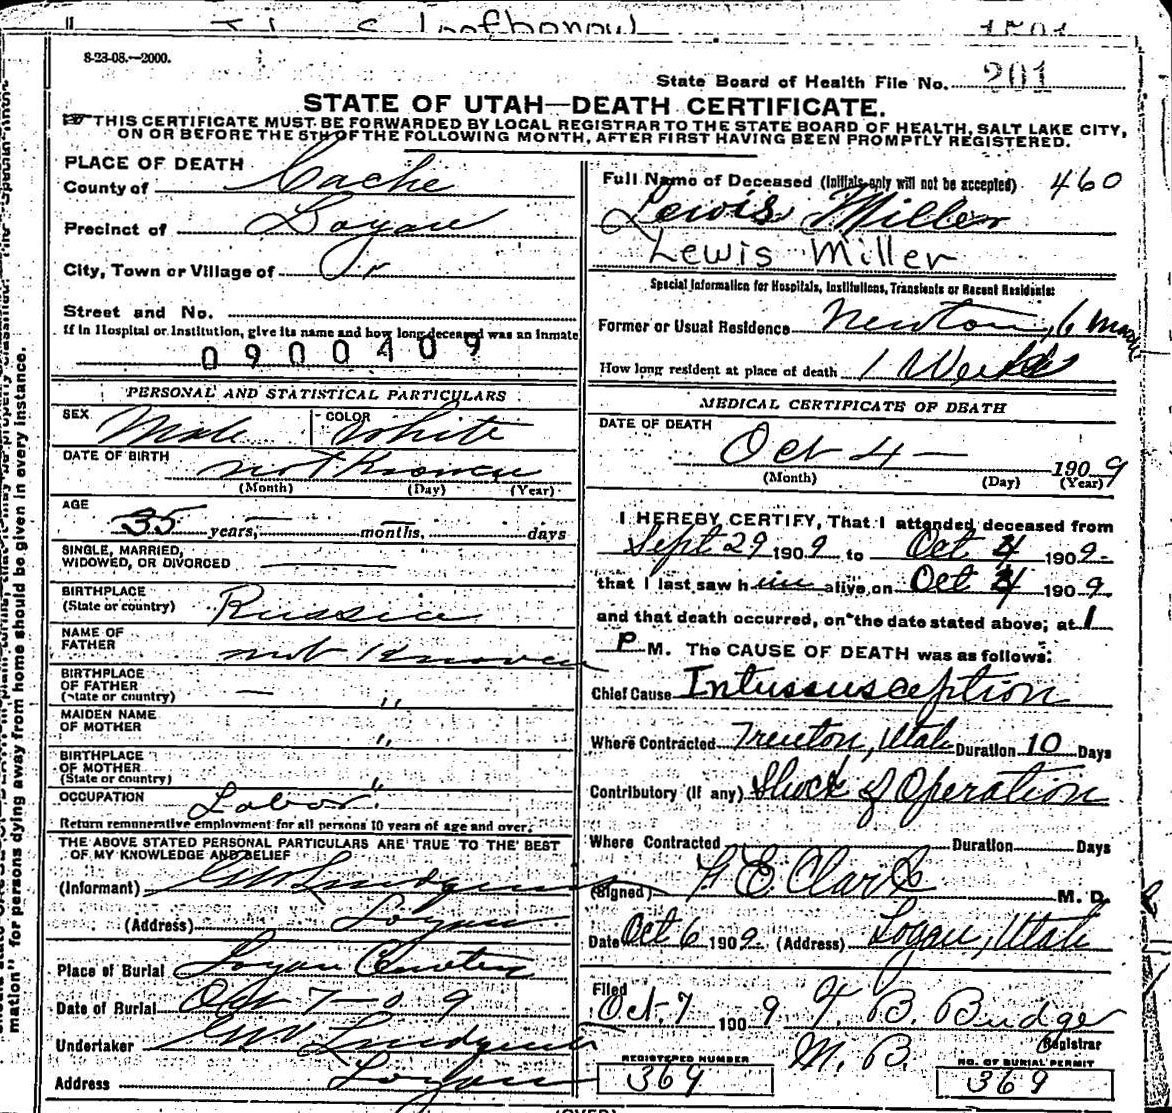 8-23-08.—2000.
State Board of Health File No. 201
STATE OF UTAH—DEATH CERTIFICATE.
THIS CERTIFICATE MUST BE FORWARDED BY LOCAL REGISTRAR TO THE STATE BOARD OF HEALTH, SALT LAKE CITY,
ON OR BEFORE THE 5TH OF THE FOLLOWING MONTH, AFTER FIRST HAVING BEEN PROMPTLY REGISTERED.
PLACE OF DEATH
County of Cache
Precinct of Logan
City, Town or Village of
Street and No.
If in Hospital or Institution, give its name and how long deceased was an inmate
0900409
PERSONAL AND STATISTICAL PARTICULARS
SEX COLOR
Male White
DATE OF BIRTH not Known
(Month) (Day) (Year)
AGE
35 years, — months, days
SINGLE, MARRIED,
WIDOWED, OR DIVORCED —
BIRTHPLACE
(State or country) Russia
NAME OF
FATHER not Known
BIRTHPLACE
OF FATHER
(State or country) — "
MAIDEN NAME
OF MOTHER "
BIRTHPLACE
OF MOTHER
(State or country) "
OCCUPATION Labor
Return remunerative employment for all persons 10 years of age and over.
THE ABOVE STATED PERSONAL PARTICULARS ARE TRUE TO THE BEST
OF MY KNOWLEDGE AND BELIEF
(Informant) Lindquist
(Address) Logan
Place of Burial Logan Cemetery
Date of Burial Oct 7-09
Undertaker Lindquist
Address Logan
(OVER)
Full Name of Deceased (Initials only will not be accepted) 460
Lewis Miller
Lewis Miller
Special Information for Hospitals, Institutions, Transients or Recent Residents:
Former or Usual Residence Newton, 6
How long resident at place of death 1 Week
MEDICAL CERTIFICATE OF DEATH
DATE OF DEATH
Oct 4 — 1909
(Month) (Day) (Year)
I HEREBY CERTIFY, That I attended deceased from
Sept 29 1909 to Oct 4 1909
that I last saw him alive on Oct 4 1909
and that death occurred, on the date stated above, at 1
P M. The CAUSE OF DEATH was as follows:
Chief Cause Intussusception
Where Contracted Trenton, Utah Duration 10 Days
Contributory (if any) Shock of Operation
Where Contracted Duration Days
(Signed) E Clark M. D.
Date Oct 6 1909 (Address) Logan, Utah
Filed
Oct. 7 1909 B. Budge
Registrar
M. B.
REGISTERED NUMBER
369
NO. OF BURIAL PERMIT
369
mation" for persons dying away from home should be given in every instance.